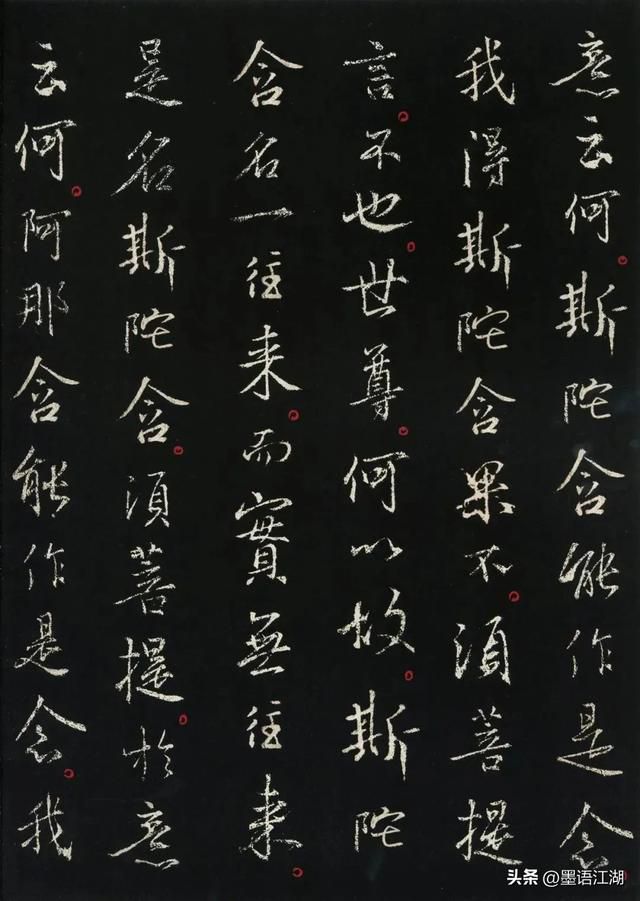 意云何斯陀含能作是念
我得斯陀含果不須菩提
言不也世尊何以故斯陀
含名一往来而實無往来
是名斯陀含須菩提於意
云何阿那含能作是念我
头条@墨语江湖